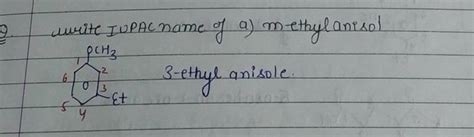 Q. write IUPAC name of a) m-ethylanisol
OCH3
1
6 2
3-ethyl anisole.
5 3 -Et
4